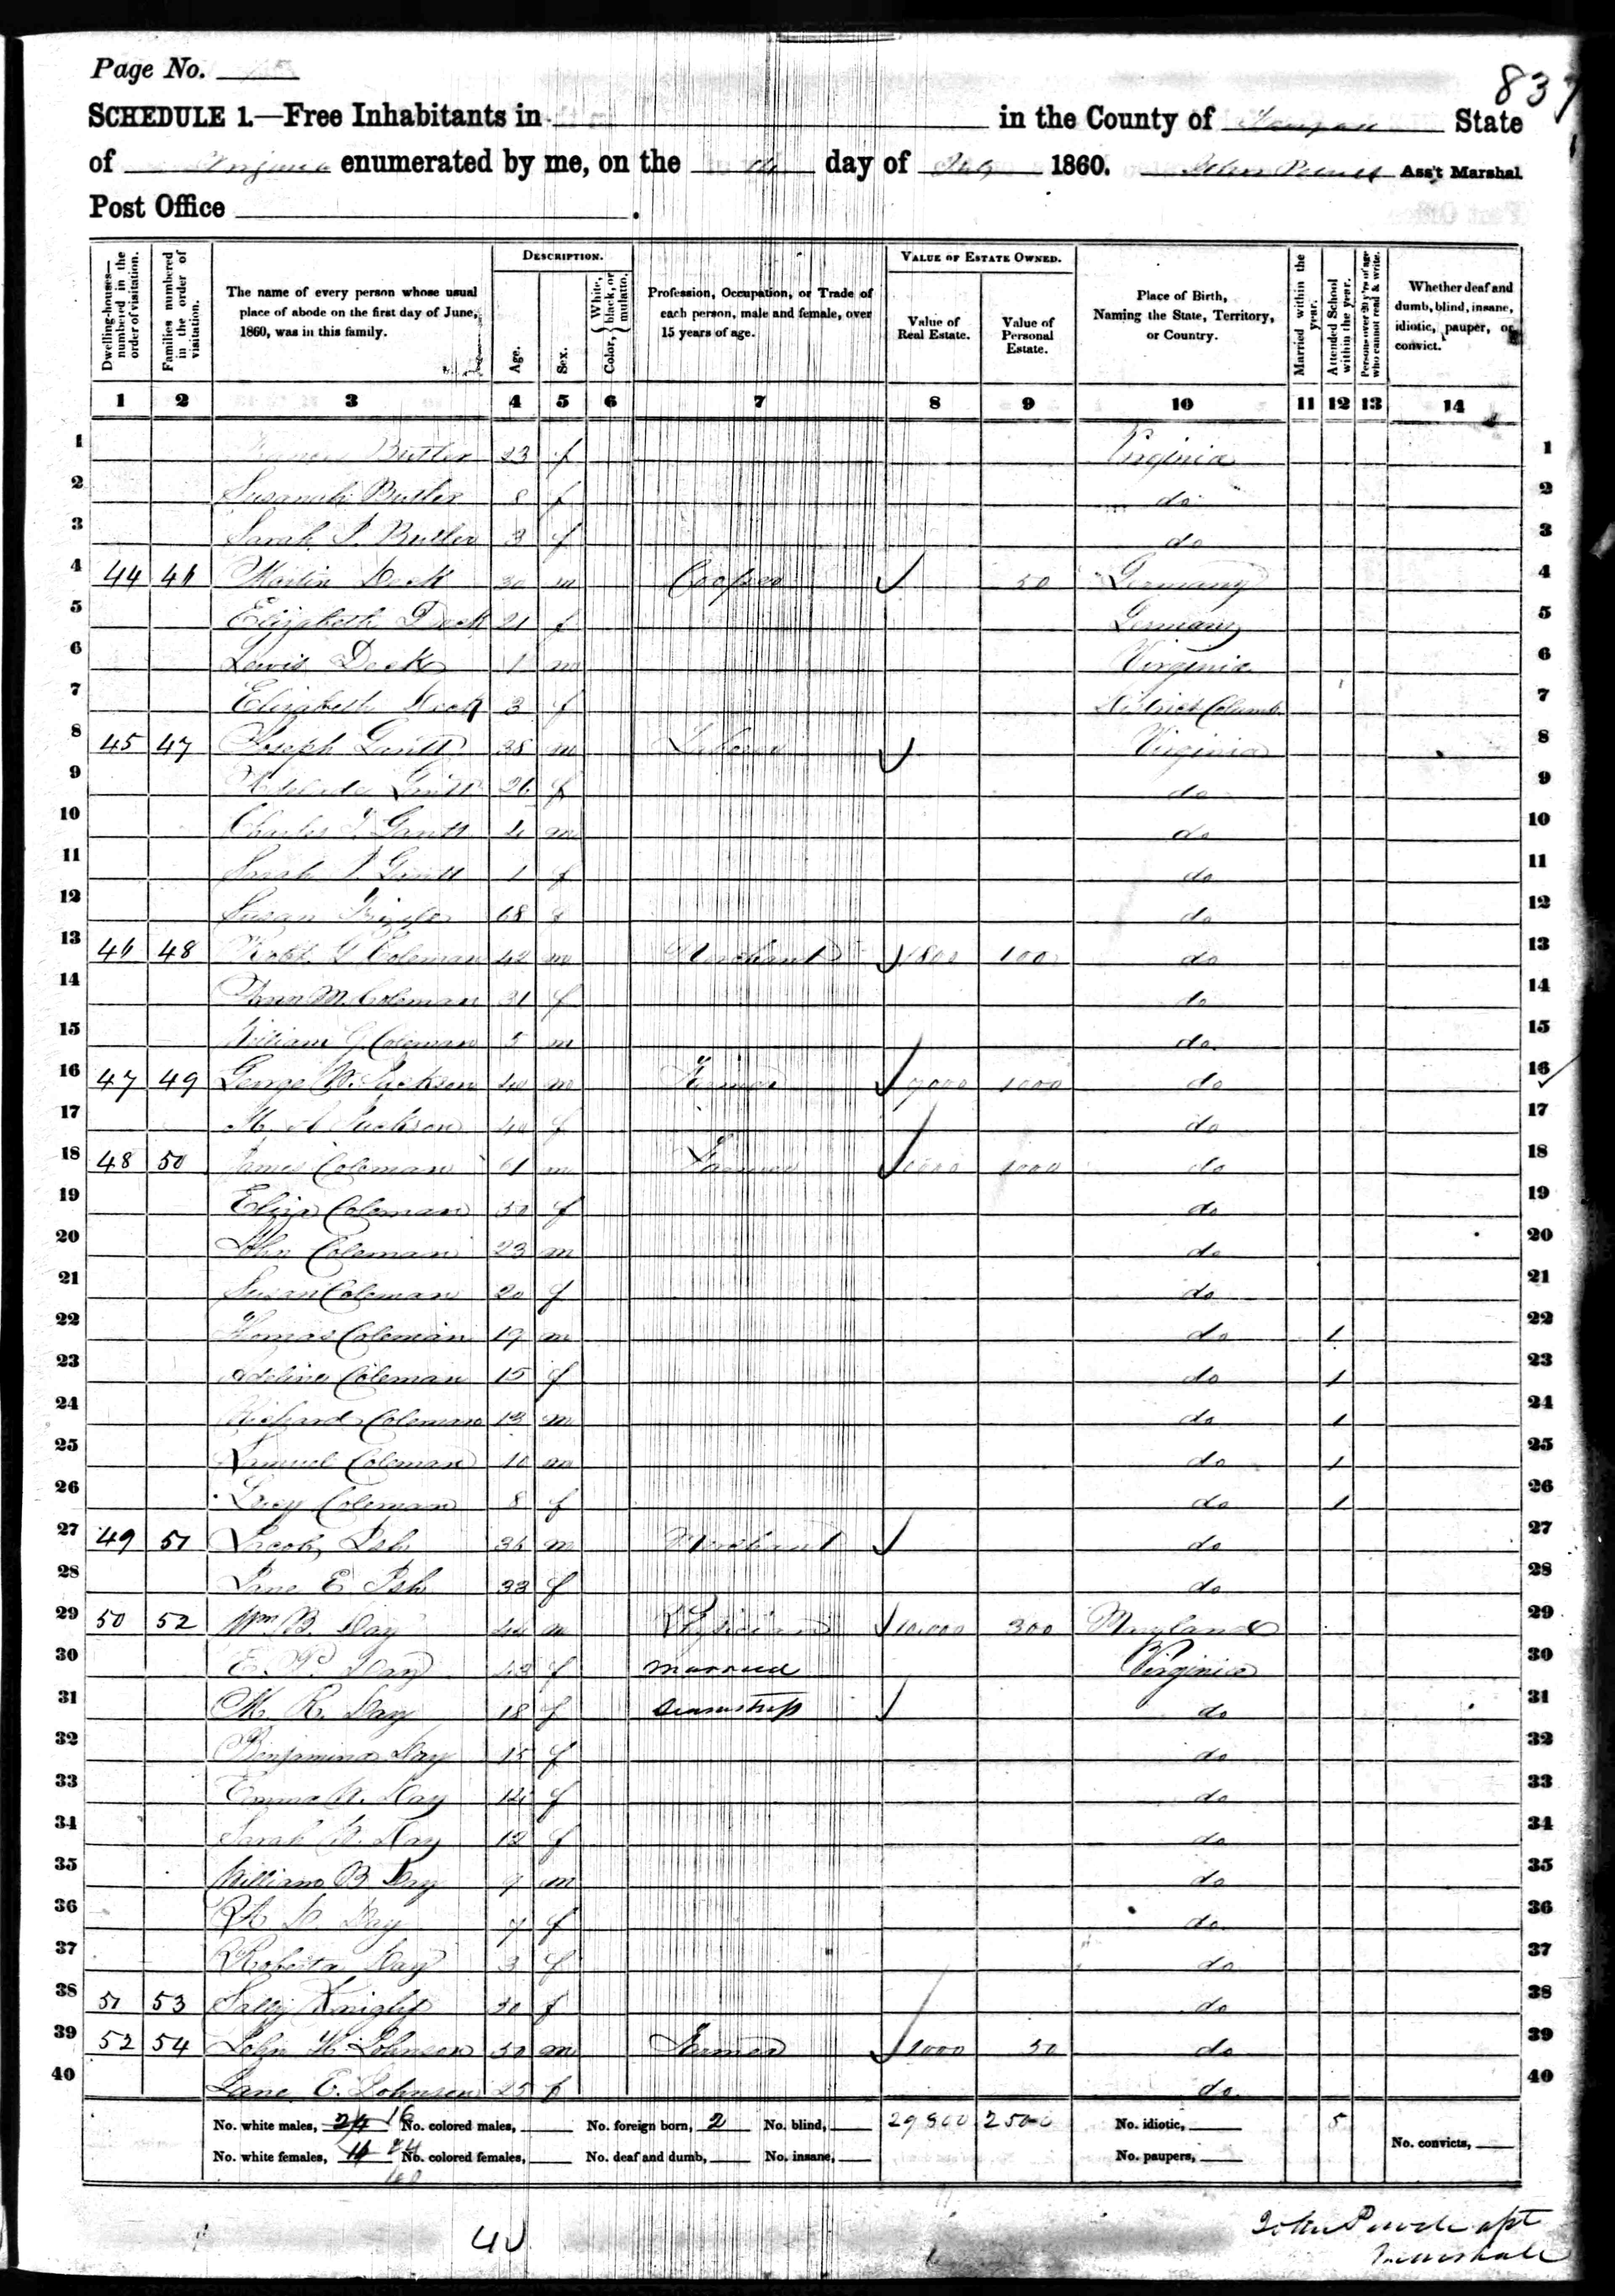 Page No.
837
SCHEDULE 1.—Free Inhabitants in in the County of State
of enumerated by me, on the 14 day of July 1860. John Ass't Marshal
Post Office .
Dwelling-houses—numbered in the order of visitation.
Families numbered in the order of visitation.
The name of every person whose usual place of abode on the first day of June, 1860, was in this family.
DESCRIPTION.
Age.
Sex.
Color, { White, black, or mulatto.
Profession, Occupation, or Trade of each person, male and female, over 15 years of age.
VALUE OF ESTATE OWNED.
Value of Real Estate.
Value of Personal Estate.
Place of Birth, Naming the State, Territory, or Country.
Married within the year.
Attended School within the year.
Persons over 20 y'rs of age who cannot read & write.
Whether deaf and dumb, blind, insane, idiotic, pauper, or convict.
1 2 3 4 5 6 7 8 9 10 11 12 13 14
1 Butler 23 f Virginia 1
2 Susanah Butler 8 f do 2
3 Sarah J. Butler 3 f do 3
4 44 46 Martin Deck 30 m Cooper 50 Germany 4
5 Elizabeth Deck 21 f Germany 5
6 Lewis Deck 1 m Virginia 6
7 Elizabeth Deck 3 f District Columb 7
8 45 47 Joseph Gantt 38 m Laborer Virginia 8
9 Gantt 26 f do 9
10 Charles Gantt 4 m do 10
11 Sarah J. Gantt 1 f do 11
12 Susan 68 f do 12
13 46 48 Robt. G. Coleman 42 m Merchant 1800 100 do 13
14 Ann M. Coleman 31 f do 14
15 William G. Coleman 5 m do 15
16 47 49 George W. Jackson 40 m Farmer 9000 1000 do 16
17 M. A. Jackson 40 f do 17
18 48 50 James Coleman 61 m Farmer 1000 do 18
19 Eliza Coleman 50 f do 19
20 John Coleman 23 m do 20
21 Susan Coleman 20 f do 21
22 Thomas Coleman 19 m do 1 22
23 Adeline Coleman 15 f do 1 23
24 Richard Coleman 13 m do 1 24
25 Samuel Coleman 10 m do 1 25
26 Lucy Coleman 8 f do 1 26
27 49 51 Jacob Ish 36 m Merchant do 27
28 Jane E Ish 33 f do 28
29 50 52 Wm B. Day 44 m Physician 10,000 300 Maryland 29
30 E. Day 43 f married Virginia 30
31 M. R. Day 18 f seamstress do 31
32 Benjamina Day 15 f do 32
33 Emma Day 14 f do 33
34 Sarah Day 12 f do 34
35 William B Day 9 m do 35
36 Day 7 f do 36
37 Roberta Day 3 f do 37
38 51 53 Sally Knight 50 f do 38
39 52 54 John H. Johnson 50 m Farmer 1000 50 do 39
40 Jane C. Johnson 25 f do 40
No. white males, 24 16 No. colored males, No. foreign born, 2 No. blind, 29800 2500 No. idiotic, 5
No. white females, 16 24 No. colored females, No. deaf and dumb, No. insane, No. paupers, No. convicts,
40
40
John apt
Marshall